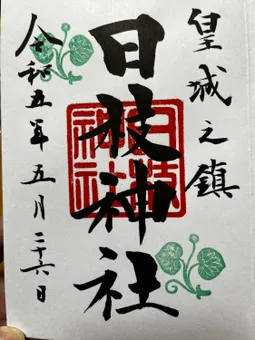 皇城之鎮
日枝神社
令和五年五月二十六日